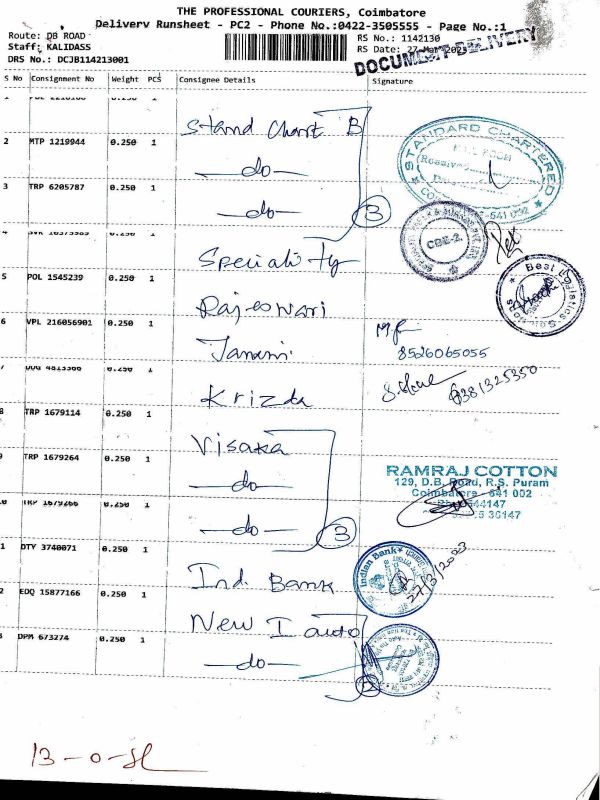 THE PROFESSIONAL COURIERS, Coimbatore
Delivery Runsheet - PC2 - Phone No.:0422-3505555 - Page No.:1
Route: DB ROAD RS No.: 1142130
Staff: KALIDASS RS Date: 27-Mar-2023
DRS No.: DCJB114213001
DOCUMENT DELIVERY
S No Consignment No Weight PCS Consignee Details Signature
Stand Chart B
2 MTP 1219944 0.250 1
—do—
3 TRP 6205787 0.250 1
—do— 3
STANDARD CHARTERED
Received
641 002
CBE-2.
Speciality
Best Logistics
5 POL 1545239 0.250 1
Rajeswari
6 VPL 216056901 0.250 1
Janani
8526065055
DUG 4813366 0.250 1
Krizda
8 TRP 1679114 0.250 1
Visaka
9 TRP 1679264 0.250 1
—do—
RAMRAJ COTTON
129, D.B. Road, R.S. Puram
Coimbatore - 641 002
TRP 1679266 0.250 1
—do— 3
1 DTY 3740071 0.250 1
Ind. Bank
Indian Bank
27/3/2023
2 EDQ 15877166 0.250 1
New I auto
3 DPM 673274 0.250 1
—do— 2
13-0-